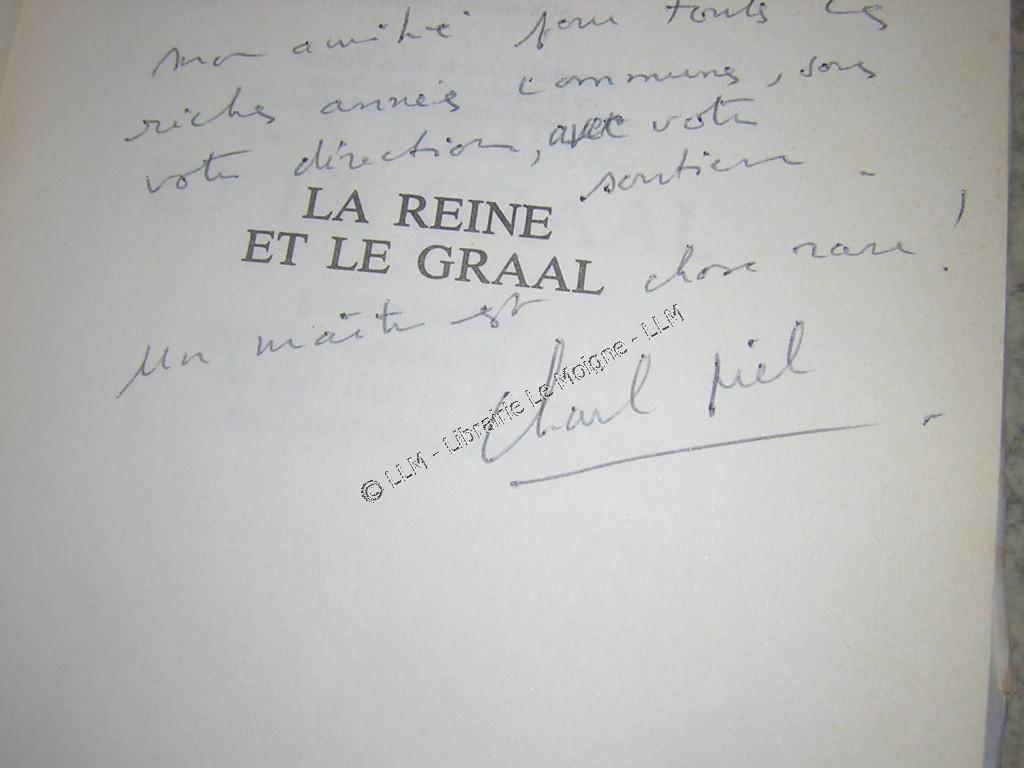 mon amitié pour toutes ces
riches années communes, sous
votre direction, avec votre
soutien.
LA REINE
ET LE GRAAL
Un maître est chose rare !
Charl Méla
© LLM - Librairie Le Moigne - LLM